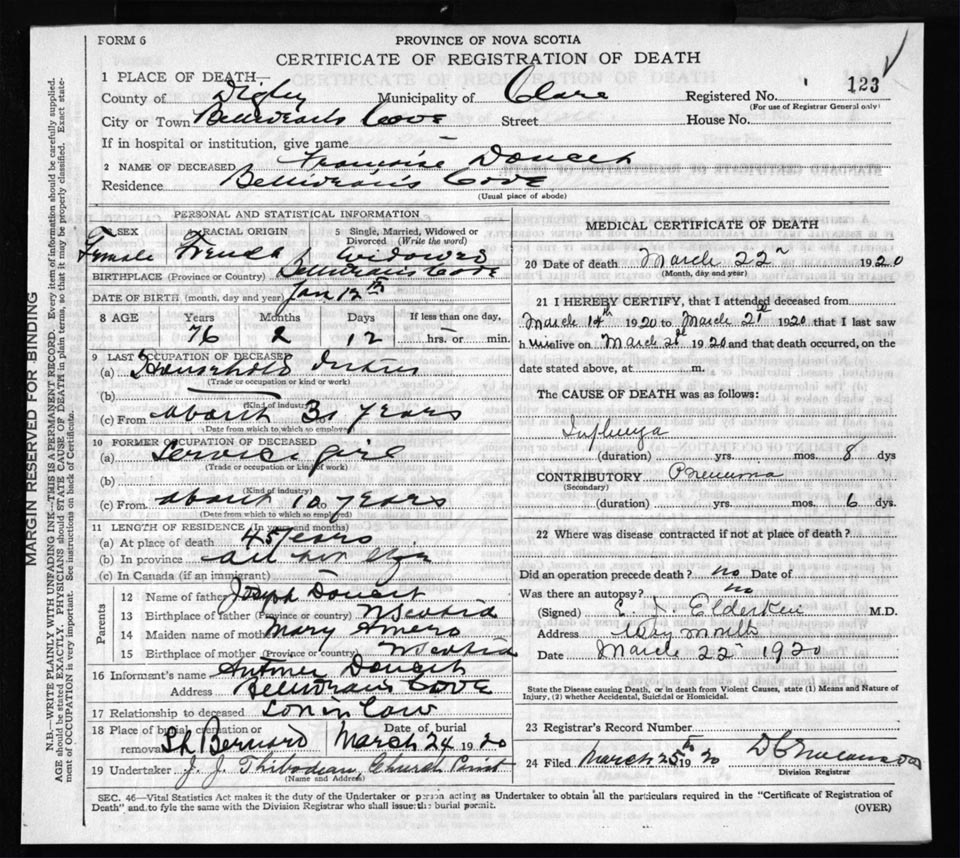 FORM 6
PROVINCE OF NOVA SCOTIA
CERTIFICATE OF REGISTRATION OF DEATH
1 PLACE OF DEATH—
County of Digby Municipality of Clare Registered No. 123
(For use of Registrar General only)
City or Town Belliveau's Cove Street House No.
If in hospital or institution, give name
2 NAME OF DECEASED Francoise Doucet
Residence Belliveau's Cove
(Usual place of abode)
PERSONAL AND STATISTICAL INFORMATION
SEX RACIAL ORIGIN 5 Single, Married, Widowed or Divorced (Write the word)
Female French Widowed
BIRTHPLACE (Province or Country) Belliveau's Cove
DATE OF BIRTH (month, day and year) Jan 12th
8 AGE Years Months Days If less than one day,
76 2 12 hrs. or min.
9 LAST OCCUPATION OF DECEASED
(a) Household duties
(Trade or occupation or kind or work)
(b)
(Kind of industry)
(c) From about 30 years
(Date from which to which so employed)
10 FORMER OCCUPATION OF DECEASED
(a) Service girl
(Trade or occupation or kind of work)
(b)
(Kind of industry)
(c) From about 10 years
(Date from which to which so employed)
11 LENGTH OF RESIDENCE (In years and months)
(a) At place of death 45 years
(b) In province all her
(c) In Canada (if an immigrant)
Parents
12 Name of father Joseph Doucet
13 Birthplace of father (Province or country) N Scotia
14 Maiden name of mother Mary Amero
15 Birthplace of mother (Province or country) N Scotia
16 Informant's name Doucet
Address Belliveau's Cove
17 Relationship to deceased son in law
18 Place of burial, cremation or removal St Bernard Date of burial March 24 1920
19 Undertaker J. J. Thibodeau Church Point
(Name and Address)
MEDICAL CERTIFICATE OF DEATH
20 Date of death March 22 1920
(Month, day and year)
21 I HEREBY CERTIFY, that I attended deceased from
March 14th 1920 to March 21st 1920 that I last saw
h alive on March 21st 1920 and that death occurred, on the
date stated above, at m.
The CAUSE OF DEATH was as follows:
Influenza
(duration) yrs. mos. 8 dys
CONTRIBUTORY Pneumonia
(Secondary)
(duration) yrs. mos. 6 dys.
22 Where was disease contracted if not at place of death?
Did an operation precede death? no Date of
Was there an autopsy? no
(Signed) E. J. Elderkin M.D.
Address Weymouth
Date March 22 1920
State the Disease causing Death, or in death from Violent Causes, state (1) Means and Nature of
Injury, (2) whether Accidental, Suicidal or Homicidal.
23 Registrar's Record Number
24 Filed March 25th 1920
Division Registrar
SEC. 46—Vital Statistics Act makes it the duty of the Undertaker or person acting as Undertaker to obtain all the particulars required in the "Certificate of Registration of
Death" and to fyle the same with the Division Registrar who shall issue the burial permit.
(OVER)
MARGIN RESERVED FOR BINDING
N.B.—WRITE PLAINLY WITH UNFADING INK—THIS IS A PERMANENT RECORD. Every item of information should be carefully supplied.
AGE should be stated EXACTLY. PHYSICIANS should STATE CAUSE OF DEATH in plain terms, so that it may be properly classified. Exact state-
ment of OCCUPATION is very important. See instructions on back of Certificate.